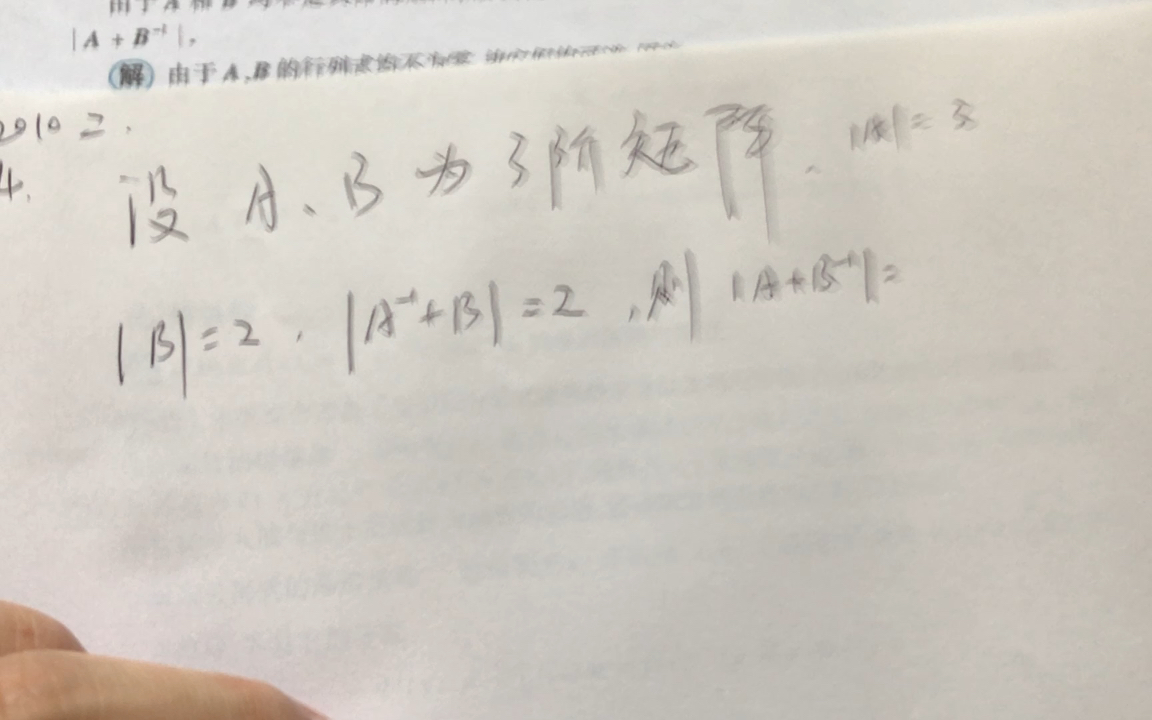 |A + B⁻¹|,
解 由于 A,B 的行列式均不为零
2010 二.
4.
设 A、B 为 3阶矩阵、|A|=3
|B|=2, |A⁻¹+B|=2,则|A+B⁻¹|=